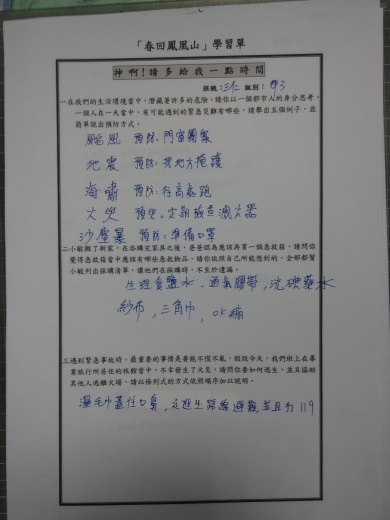 「春回鳳凰山」學習單
神啊!請多給我一點時間
班級:三仁 組別:#3
一在我們的生活環境當中,潛藏著許多的危險,請你以一個都市人的身分思考,
一個人在一天當中,有可能遇到的緊急災難有哪些,請舉出五個例子,並
簡單說出預防方式。
颱風 預防:門窗關緊
地震 預防:找地方掩護
海嘯 預防:往高處跑
火災 預防:定期檢查滅火器
沙塵暴 預防:準備口罩
二小敏搬了新家,在添購完家具之後,爸爸認為應該再買一個急救箱,請問你
覺得急救箱當中應該有哪些急救物品,請你依照自己所能想到的,全部都幫
小敏列出採購清單,讓他們在採購時,不至於遺漏。
生理食鹽水,透氣膠帶,優碘藥水
紗布,三角巾,OK繃
三遇到緊急事故時,最重要的事情是要能不慌不亂,假設今天,我們班上在畢
業旅行所居住的旅館當中,不幸發生了火災,請問你要如何逃生,並且協助
其他人逃離火場,請以條列式的方式依照順序加以說明。
濕毛巾蓋住口鼻,走逃生路線避難並且打119